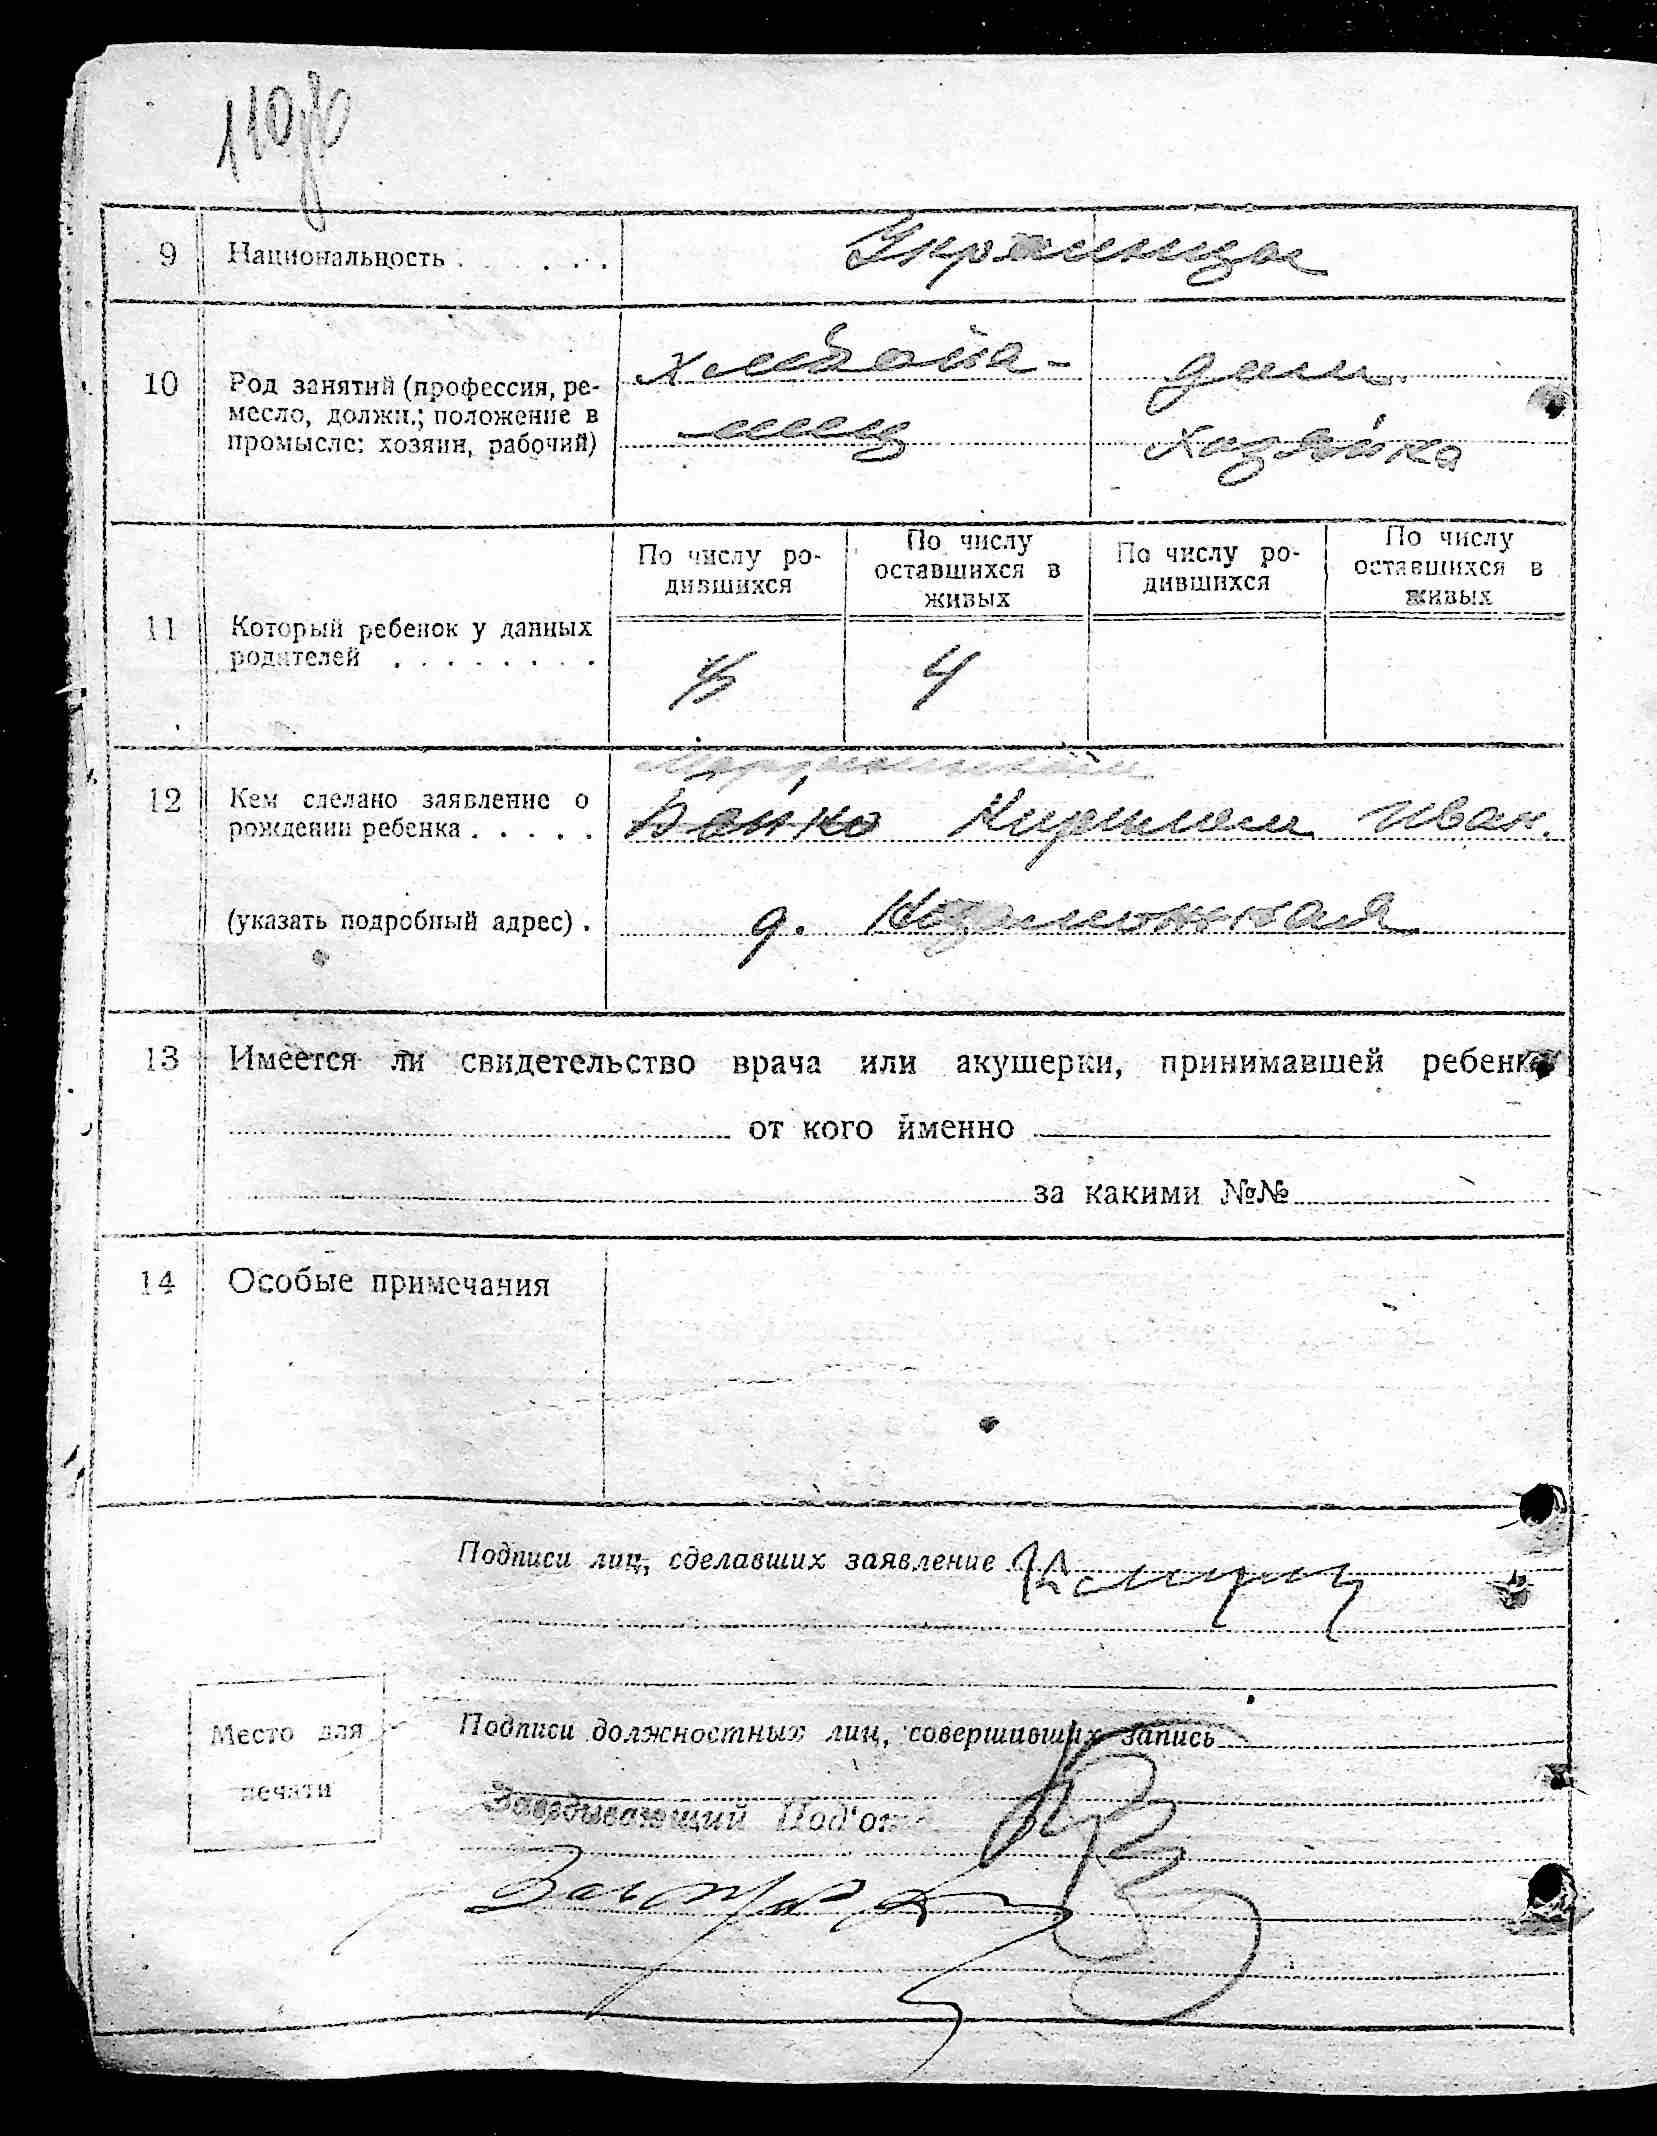 110об
9 Национальность . . . . . Украинцы
10 Род занятий (профессия, ре-
месло, должн.; положение в
промысле: хозяин, рабочий)
хлебопа-
шец
дом.
хозяйка
11 Который ребенок у данных
родителей . . . . . . . .
По числу ро-
дившихся
По числу
оставшихся в
живых
По числу ро-
дившихся
По числу
оставшихся в
живых
4
12 Кем сделано заявление о
рождении ребенка . . . . .
Бойко Кириллом Иван.
(указать подробный адрес) .
д.
13 Имеется ли свидетельство врача или акушерки, принимавшей ребенка
от кого именно
за какими №№
14 Особые примечания
Подписи лиц, сделавших заявление
Место для
печати
Подписи должностных лиц, совершивших запись
Заведывающий Под'отд.